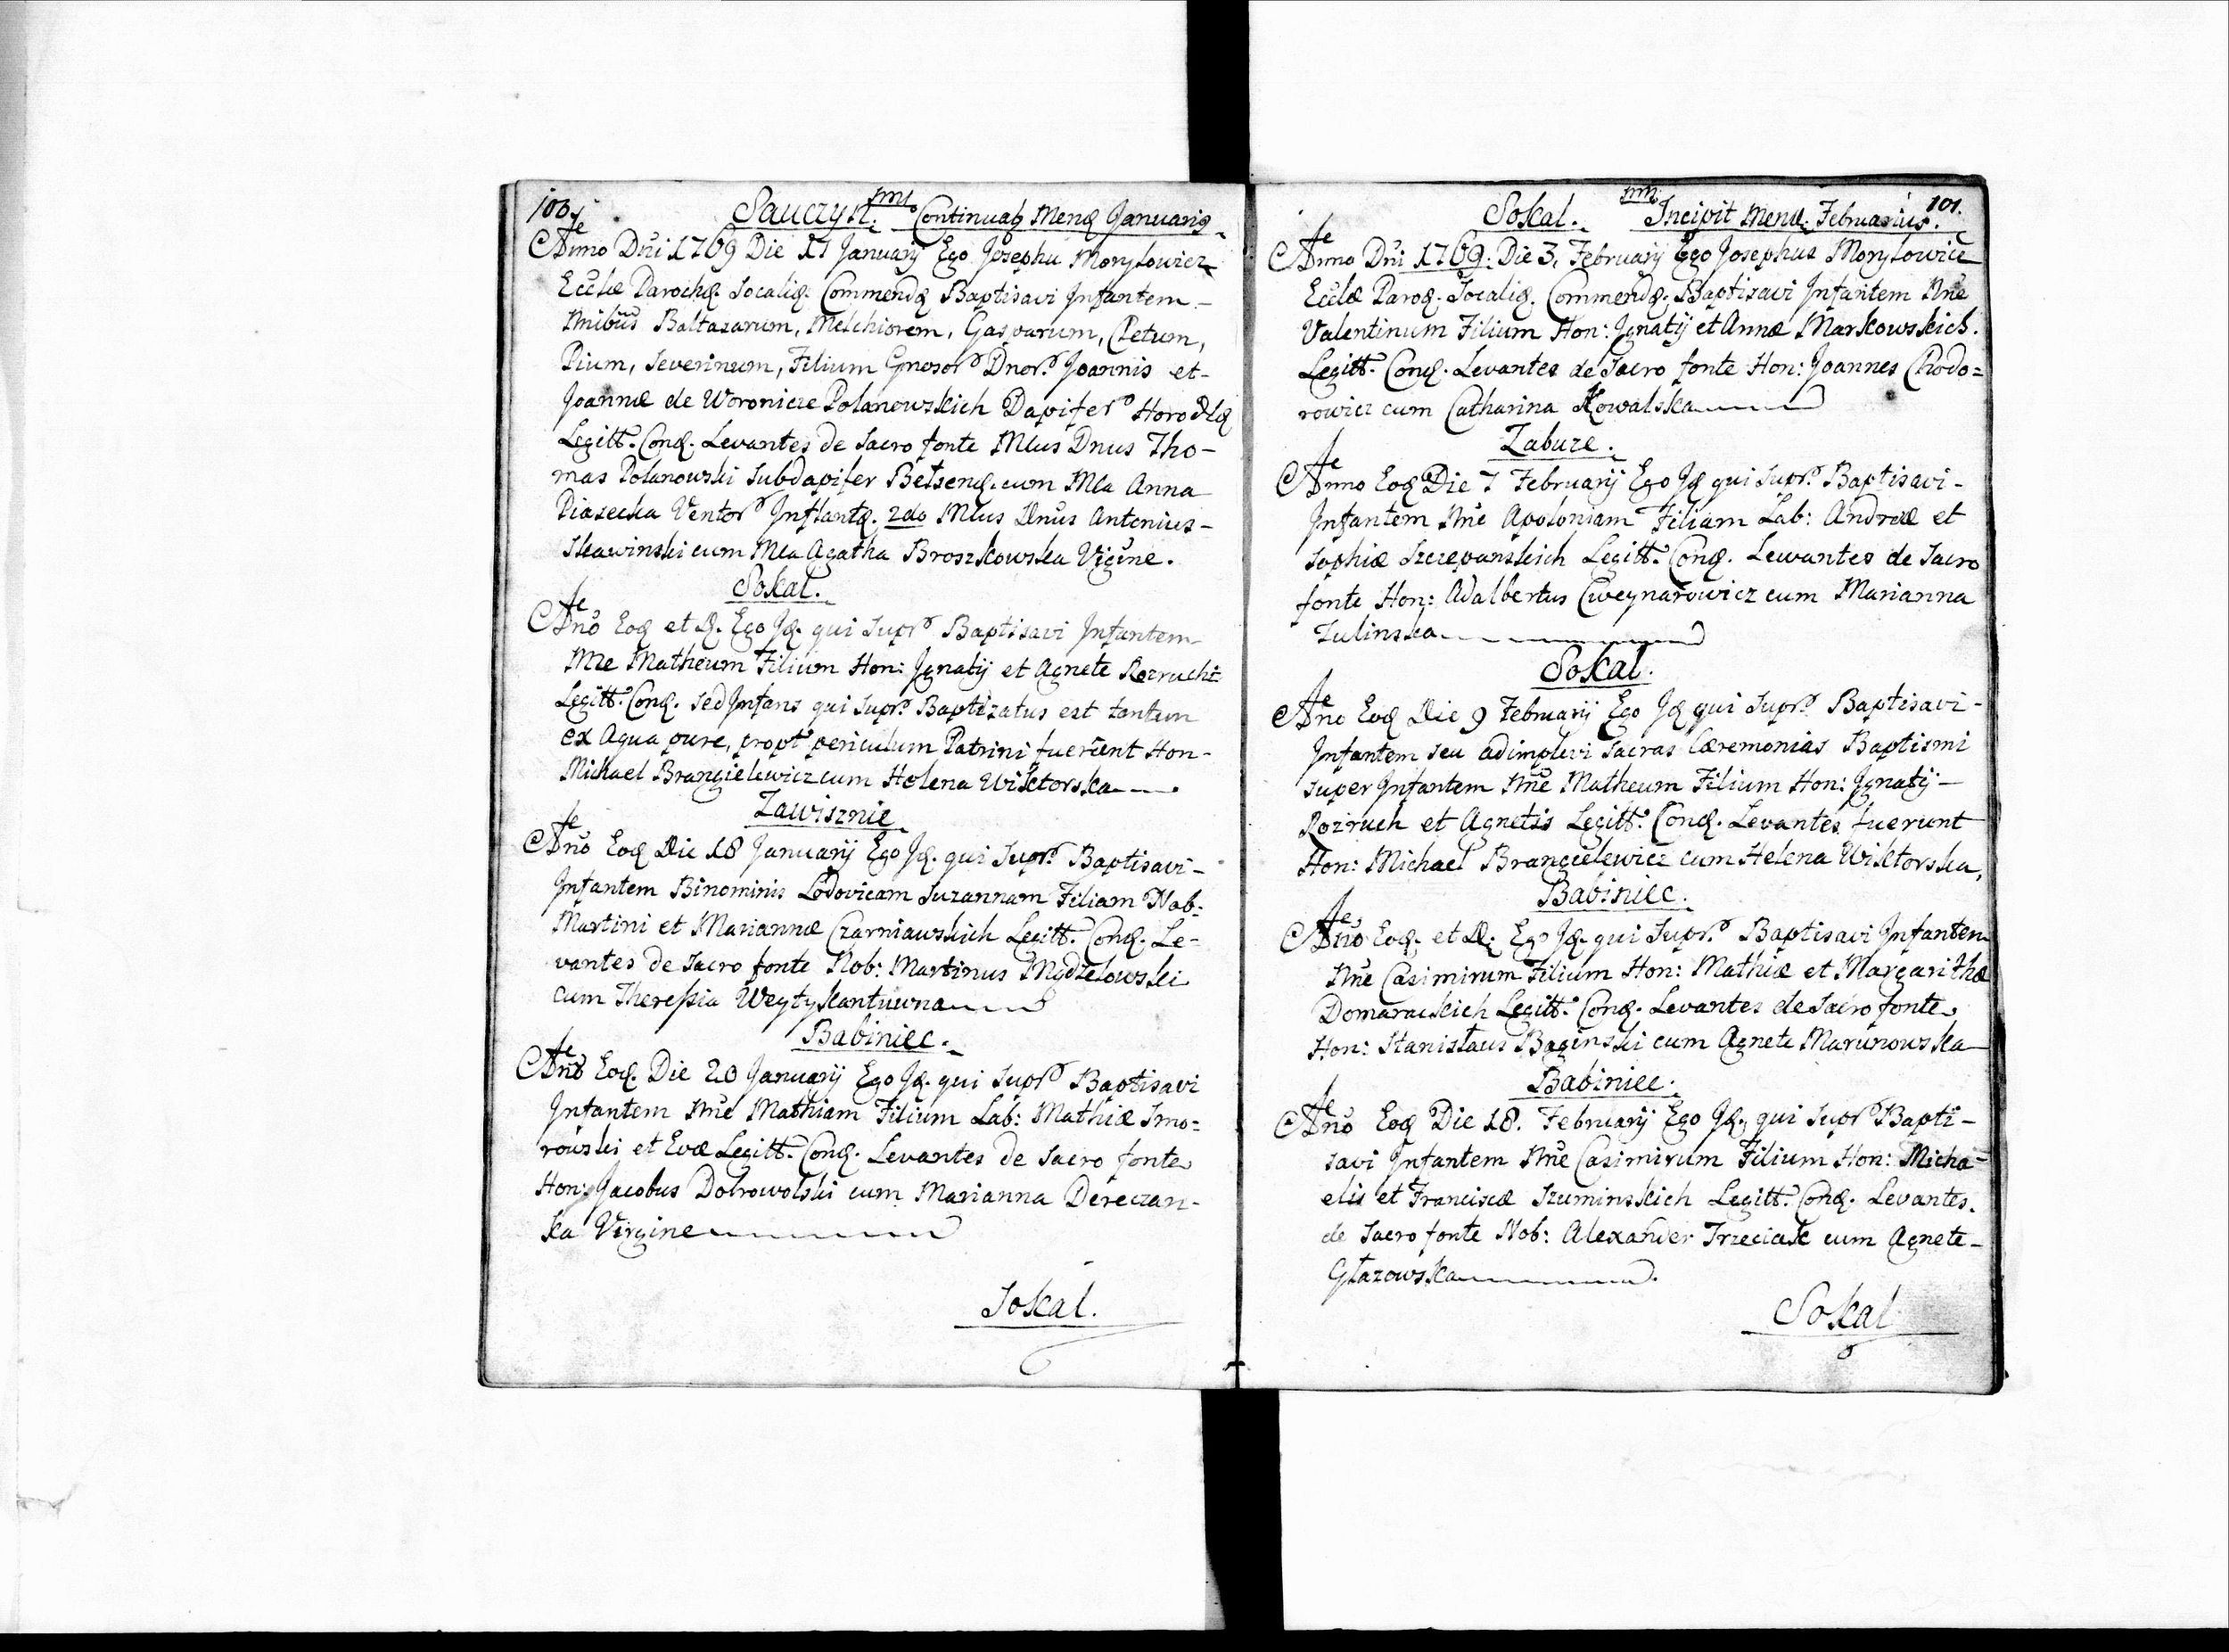 100
Sauczyn. Continuatq Menq Januariq
Anno Dni 1769 Die 17 Januarij Ego Josephu Morylowicz
Eccłæ Parochq. Socaliq. Commendq Baptisavi Infantem -
Nnibus Baltazarum, Melchiorem, Gasparum, Cletum,
Pium, Severinum, Filium Gnosor Dnor. Joannis et -
Joannæ de Woronicze Polanowskich Dapifer Horodlq
Legitt. Conq. Levantes de Sacro fonte Mlus Dnus Tho-
mas Polanowski Subdapifer Belsenq. cum Mla Anna
Piasecka Ventor Inflantq. 2do Mlus Dnus Antonius -
Skawinski cum Mla Agatha Broszkowska Vigine.
Sokal.
Ano Eoq et D. Ego Jq. qui Supr Baptisavi Infantem
Nne Matheum Filium Hon: Ignatij et Agnete Rozruch
Legitt. Conq. sed Infans qui Supr. Baptizatus est tantum
ex Aqua pure, propt periculum Patrini fuerunt Hon-
Michael Brangielewicz cum Helena Wiktorska
Zawisznie
Ano Eoq Die 18 Januarij Ego Jq. qui Supr. Baptisavi -
Infantem Binominis Lodovicam Suzannam Filiam Nob:
Martini et Mariannæ Czarniawskich Legitt. Conq. Le-
vantes de Sacro fonte Nob: Martinus Mgdzelowski
cum Theressia Weytykantuwna
Babiniec.
Ano Eoq. Die 20 Januarij Ego Jq. qui Supr Baptisavi
Infantem Nne Mathiam Filium Lab: Mathiæ Smo=
rowski et Evæ Legitt. Conq. Levantes de Sacro fonte
Hon: Jacobus Dobrowolski cum Marianna Dereczan-
ka Virgine
Sokal.
101.
Sokal. Incipit Menq. Februarius.
Anno Dni 1769. Die 3. Februarij Ego Josephus Morylowicz
Eclæ Paroq. Socaliq. Commendq. Baptisavi Infantem Nne
Valentinum Filium Hon: Ignatij et Annæ Markowskich.
Legitt. Conq. Levantes de Sacro fonte Hon: Joannes Chodo=
rowicz cum Catharina Kowalska
Zabuze.
Anno Eoq Die 7 Februarij Ego Jq qui Supr. Baptisavi -
Infantem Nne Apoloniam Filiam Lab: Andreæ et
Sophiæ Szczepanskich Legitt. Conq. Lewantes de Sacro
fonte Hon: Adalbertus Cweynarowicz cum Marianna
Zulinska
Sokal.
Ano Eoq Die 9 Februarij Ego Jq qui Supr. Baptisavi -
Infantem seu adimplevi Sacras Cæremonias Baptismi
super Infantem Nne Matheum Filium Hon: Ignatij -
Rozruch et Agnetis Legitt. Conq. Levantes fuerunt
Hon: Michael Brangielewicz cum Helena Wiktorska,
Babiniec.
Ano Eoq. et D. Ego Jq. qui Supr. Baptisavi Infantem
Nne Casimirum Filium Hon: Mathiæ et Margarithæ
Domarackich Legitt. Conq. Levantes de Sacro fonte
Hon: Stanislaus Baginski cum Agnete Marunowska
Babiniec.
Ano Eoq Die 18. Februarij Ego Jq. qui Supr Bapti-
savi Infantem Nne Casimirum Filium Hon: Micha-
elis et Franciscæ Szuminskich Legitt. Conq. Levantes.
de Sacro fonte Nob: Alexander Trzeciak cum Agnete -
Głazowska
Sokal